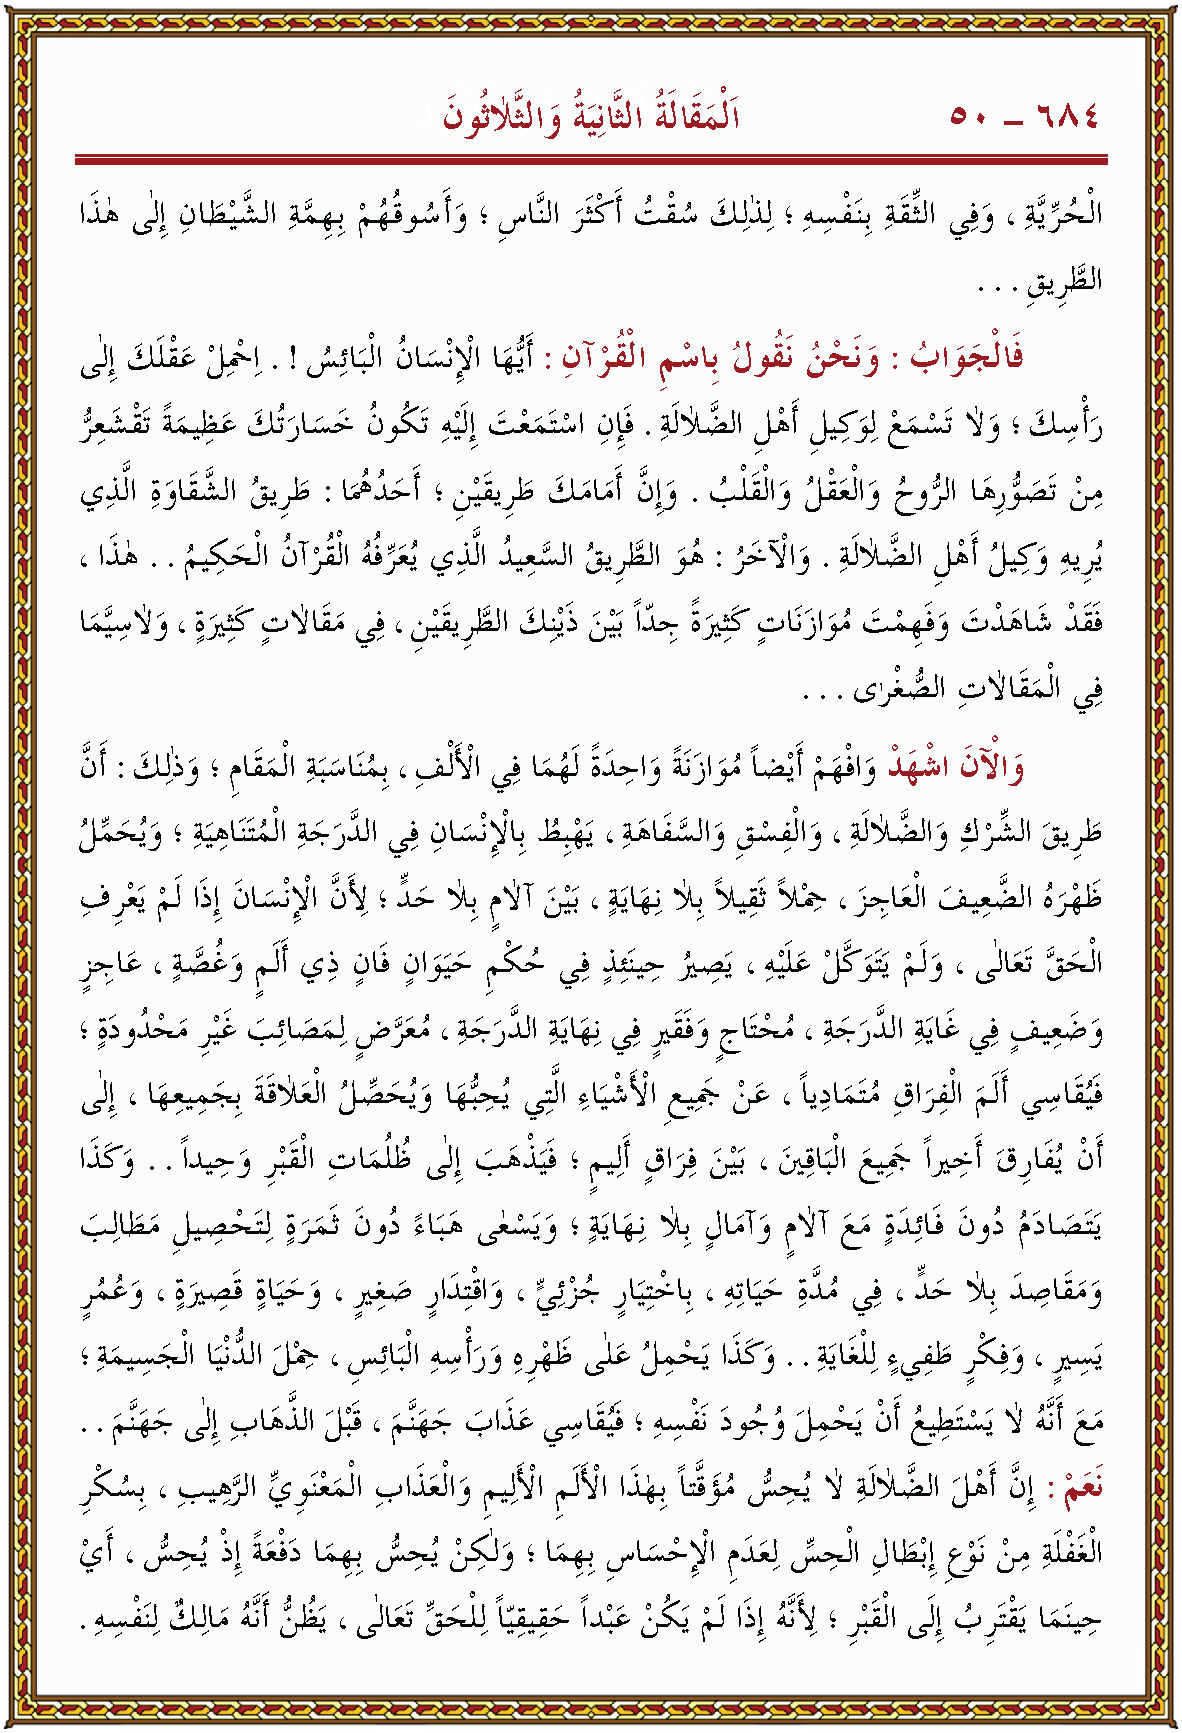 ٦٨٤ ـ ٥٠ اَلْمَقَالَةُ الثَّانِيَةُ وَالثَّلاٰثُونَ
الْحُرِّيَّةِ ، وَفِي الثِّقَةِ بِنَفْسِهِ ؛ لِذٰلِكَ سُقْتُ أَكْثَرَ النَّاسِ ؛ وَأَسُوقُهُمْ بِهِمَّةِ الشَّيْطَانِ إِلٰى هٰذَا
الطَّرِيقِ . . .
فَالْجَوَابُ : وَنَحْنُ نَقُولُ بِاسْمِ الْقُرْآنِ : أَيُّهَا الْإِنْسَانُ الْبَائِسُ ! . اِحْمِلْ عَقْلَكَ إِلٰى
رَأْسِكَ ؛ وَلاٰ تَسْمَعْ لِوَكِيلِ أَهْلِ الضَّلاٰلَةِ . فَإِنِ اسْتَمَعْتَ إِلَيْهِ تَكُونُ خَسَارَتُكَ عَظِيمَةً تَقْشَعِرُّ
مِنْ تَصَوُّرِهَا الرُّوحُ وَالْعَقْلُ وَالْقَلْبُ . وَإِنَّ أَمَامَكَ طَرِيقَيْنِ ؛ أَحَدُهُمَا : طَرِيقُ الشَّقَاوَةِ الَّذِي
يُرِيهِ وَكِيلُ أَهْلِ الضَّلاٰلَةِ . وَالْآخَرُ : هُوَ الطَّرِيقُ السَّعِيدُ الَّذِي يُعَرِّفُهُ الْقُرْآنُ الْحَكِيمُ . . هٰذَا ،
فَقَدْ شَاهَدْتَ وَفَهِمْتَ مُوَازَنَاتٍ كَثِيرَةً جِدّاً بَيْنَ ذَيْنِكَ الطَّرِيقَيْنِ ، فِي مَقَالاٰتٍ كَثِيرَةٍ ، وَلاٰسِيَّمَا
فِي الْمَقَالاٰتِ الصُّغْرٰى . . .
وَالْآنَ اشْهَدْ وَافْهَمْ أَيْضاً مُوَازَنَةً وَاحِدَةً لَهُمَا فِي الْأَلْفِ ، بِمُنَاسَبَةِ الْمَقَامِ ؛ وَذٰلِكَ : أَنَّ
طَرِيقَ الشِّرْكِ وَالضَّلاٰلَةِ ، وَالْفِسْقِ وَالسَّفَاهَةِ ، يَهْبِطُ بِالْإِنْسَانِ فِي الدَّرَجَةِ الْمُتَنَاهِيَةِ ؛ وَيُحَمِّلُ
ظَهْرَهُ الضَّعِيفَ الْعَاجِزَ ، حِمْلاً ثَقِيلاً بِلاٰ نِهَايَةٍ ، بَيْنَ آلاٰمٍ بِلاٰ حَدٍّ ؛ لِأَنَّ الْإِنْسَانَ إِذَا لَمْ يَعْرِفِ
الْحَقَّ تَعَالٰى ، وَلَمْ يَتَوَكَّلْ عَلَيْهِ ، يَصِيرُ حِينَئِذٍ فِي حُكْمِ حَيَوَانٍ فَانٍ ذِي أَلَمٍ وَغُصَّةٍ ، عَاجِزٍ
وَضَعِيفٍ فِي غَايَةِ الدَّرَجَةِ ، مُحْتَاجٍ وَفَقِيرٍ فِي نِهَايَةِ الدَّرَجَةِ ، مُعَرَّضٍ لِمَصَائِبَ غَيْرِ مَحْدُودَةٍ ؛
فَيُقَاسِي أَلَمَ الْفِرَاقِ مُتَمَادِياً ، عَنْ جَمِيعِ الْأَشْيَاءِ الَّتِي يُحِبُّهَا وَيُحَصِّلُ الْعَلاٰقَةَ بِجَمِيعِهَا ، إِلٰى
أَنْ يُفَارِقَ أَخِيراً جَمِيعَ الْبَاقِينَ ، بَيْنَ فِرَاقٍ أَلِيمٍ ؛ فَيَذْهَبَ إِلٰى ظُلُمَاتِ الْقَبْرِ وَحِيداً . . وَكَذَا
يَتَصَادَمُ دُونَ فَائِدَةٍ مَعَ آلاٰمٍ وَآمَالٍ بِلاٰ نِهَايَةٍ ؛ وَيَسْعٰى هَبَاءً دُونَ ثَمَرَةٍ لِتَحْصِيلِ مَطَالِبَ
وَمَقَاصِدَ بِلاٰ حَدٍّ ، فِي مُدَّةِ حَيَاتِهِ ، بِاخْتِيَارٍ جُزْئِيٍّ ، وَاقْتِدَارٍ صَغِيرٍ ، وَحَيَاةٍ قَصِيرَةٍ ، وَعُمُرٍ
يَسِيرٍ ، وَفِكْرٍ طَفِيءٍ لِلْغَايَةِ . . وَكَذَا يَحْمِلُ عَلٰى ظَهْرِهِ وَرَأْسِهِ الْبَائِسِ ، حِمْلَ الدُّنْيَا الْجَسِيمَةِ ؛
مَعَ أَنَّهُ لاٰ يَسْتَطِيعُ أَنْ يَحْمِلَ وُجُودَ نَفْسِهِ ؛ فَيُقَاسِي عَذَابَ جَهَنَّمَ ، قَبْلَ الذَّهَابِ إِلٰى جَهَنَّمَ . .
نَعَمْ : إِنَّ أَهْلَ الضَّلاٰلَةِ لاٰ يُحِسُّ مُؤَقَّتاً بِهٰذَا الْأَلَمِ الْأَلِيمِ وَالْعَذَابِ الْمَعْنَوِيِّ الرَّهِيبِ ، بِسُكْرِ
الْغَفْلَةِ مِنْ نَوْعِ إِبْطَالِ الْحِسِّ لِعَدَمِ الْإِحْسَاسِ بِهِمَا ؛ وَلٰكِنْ يُحِسُّ بِهِمَا دَفْعَةً إِذْ يُحِسُّ ، أَيْ
حِينَمَا يَقْتَرِبُ إِلَى الْقَبْرِ ؛ لِأَنَّهُ إِذَا لَمْ يَكُنْ عَبْداً حَقِيقِيّاً لِلْحَقِّ تَعَالٰى ، يَظُنُّ أَنَّهُ مَالِكٌ لِنَفْسِهِ .